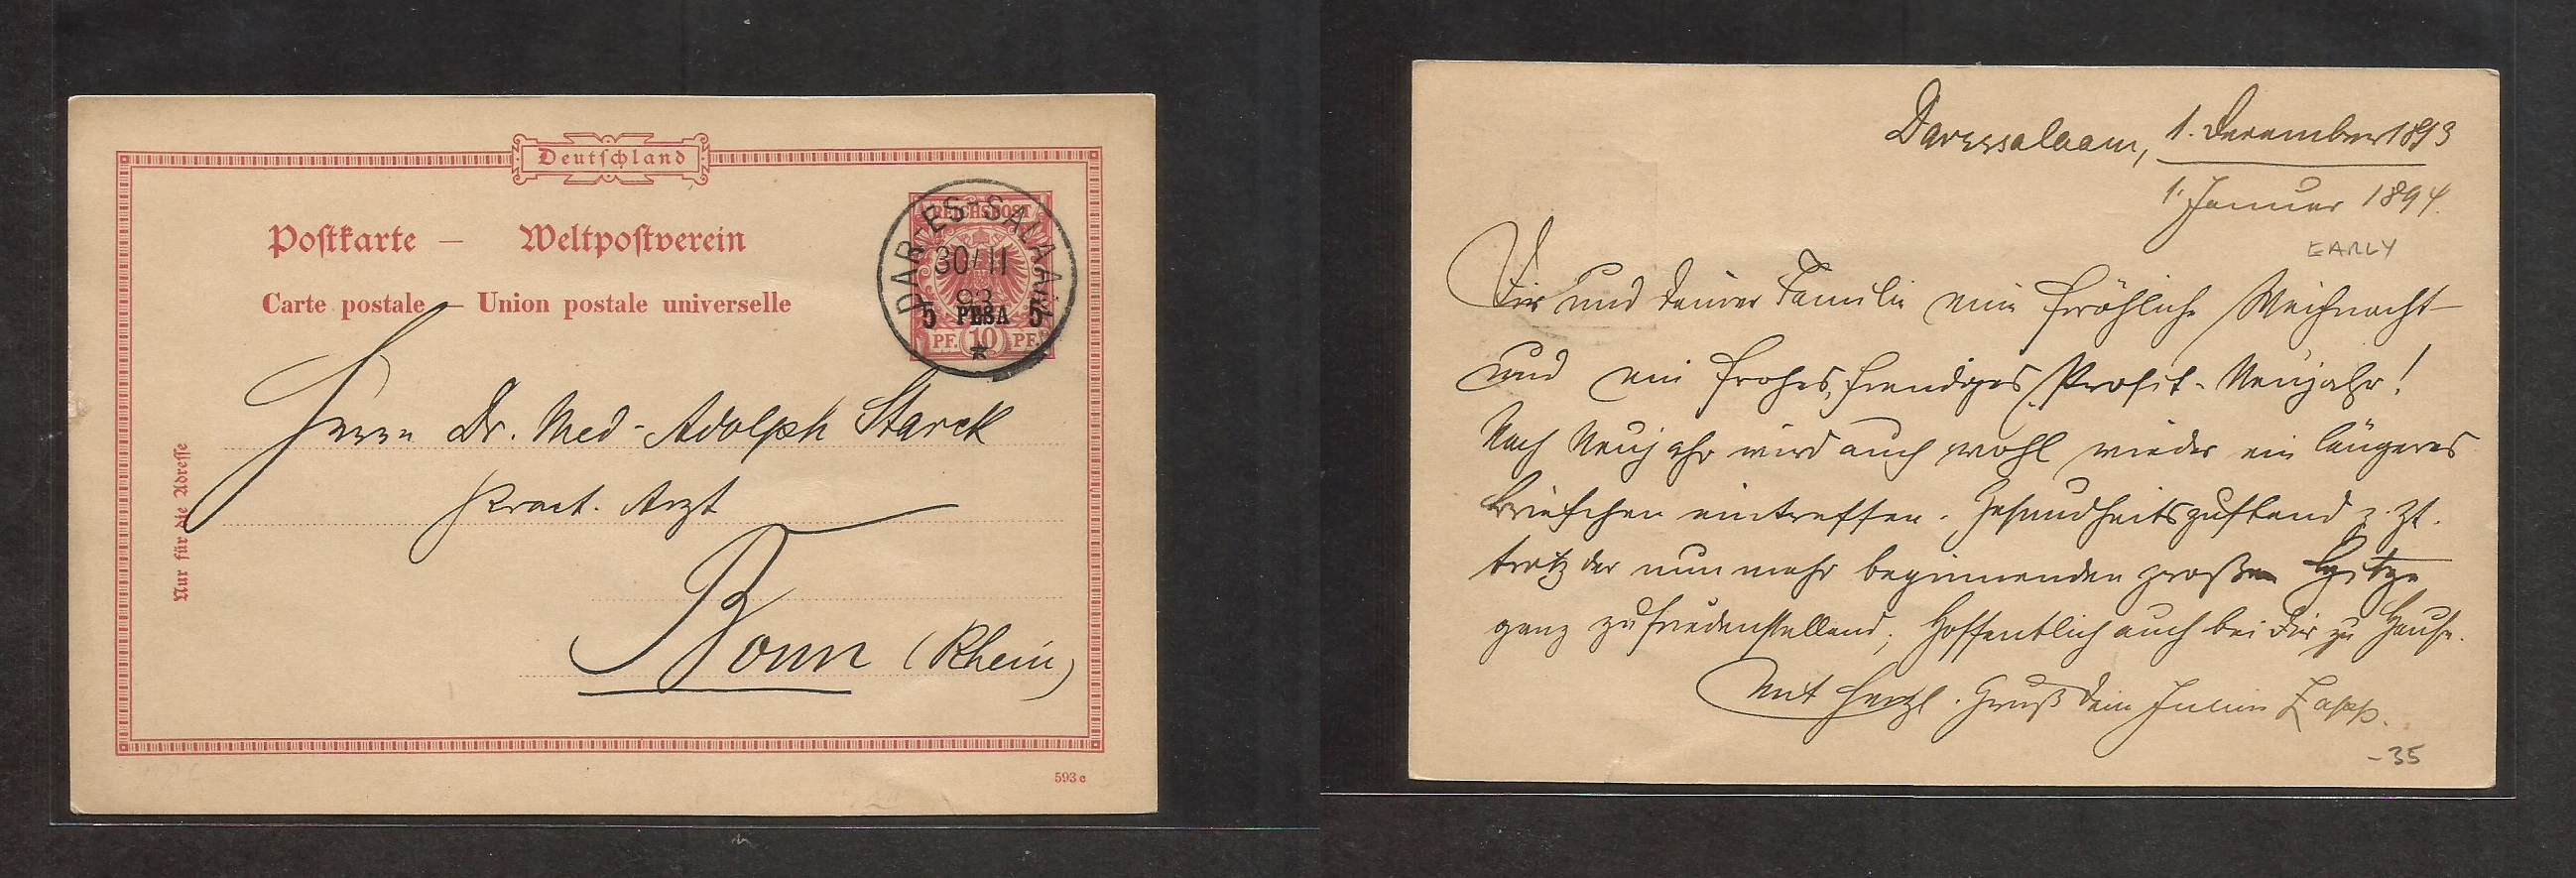 Deutschland
Postkarte — Weltpostverein
Carte postale — Union postale universelle
REICHSPOST
DAR-ES-SALAAM
30/11
93
5 PESA 5
PF. 10 PF.
*
Nur für die Adresse
Herrn Dr. Med-Adolph Starck
pract. Arzt
Bonn (Rhein)
593 c
Daressalaam, 1. Dezember 1893
1. Januar 1894.
EARLY
Dir und Deiner Familie eine fröhliche Weihnacht
und ein frohes, freudiges Prosit-Neujahr!
Nach Neujahr wird auch wohl wieder ein längeres
Briefchen eintreffen. Gesundheitszustand z. Zt.
trotz der nunmehr beginnenden großen Hitze
ganz zufriedenstellend; hoffentlich auch bei Dir zu Hause.
Mit herzl. Gruß Dein Zapp.
-35